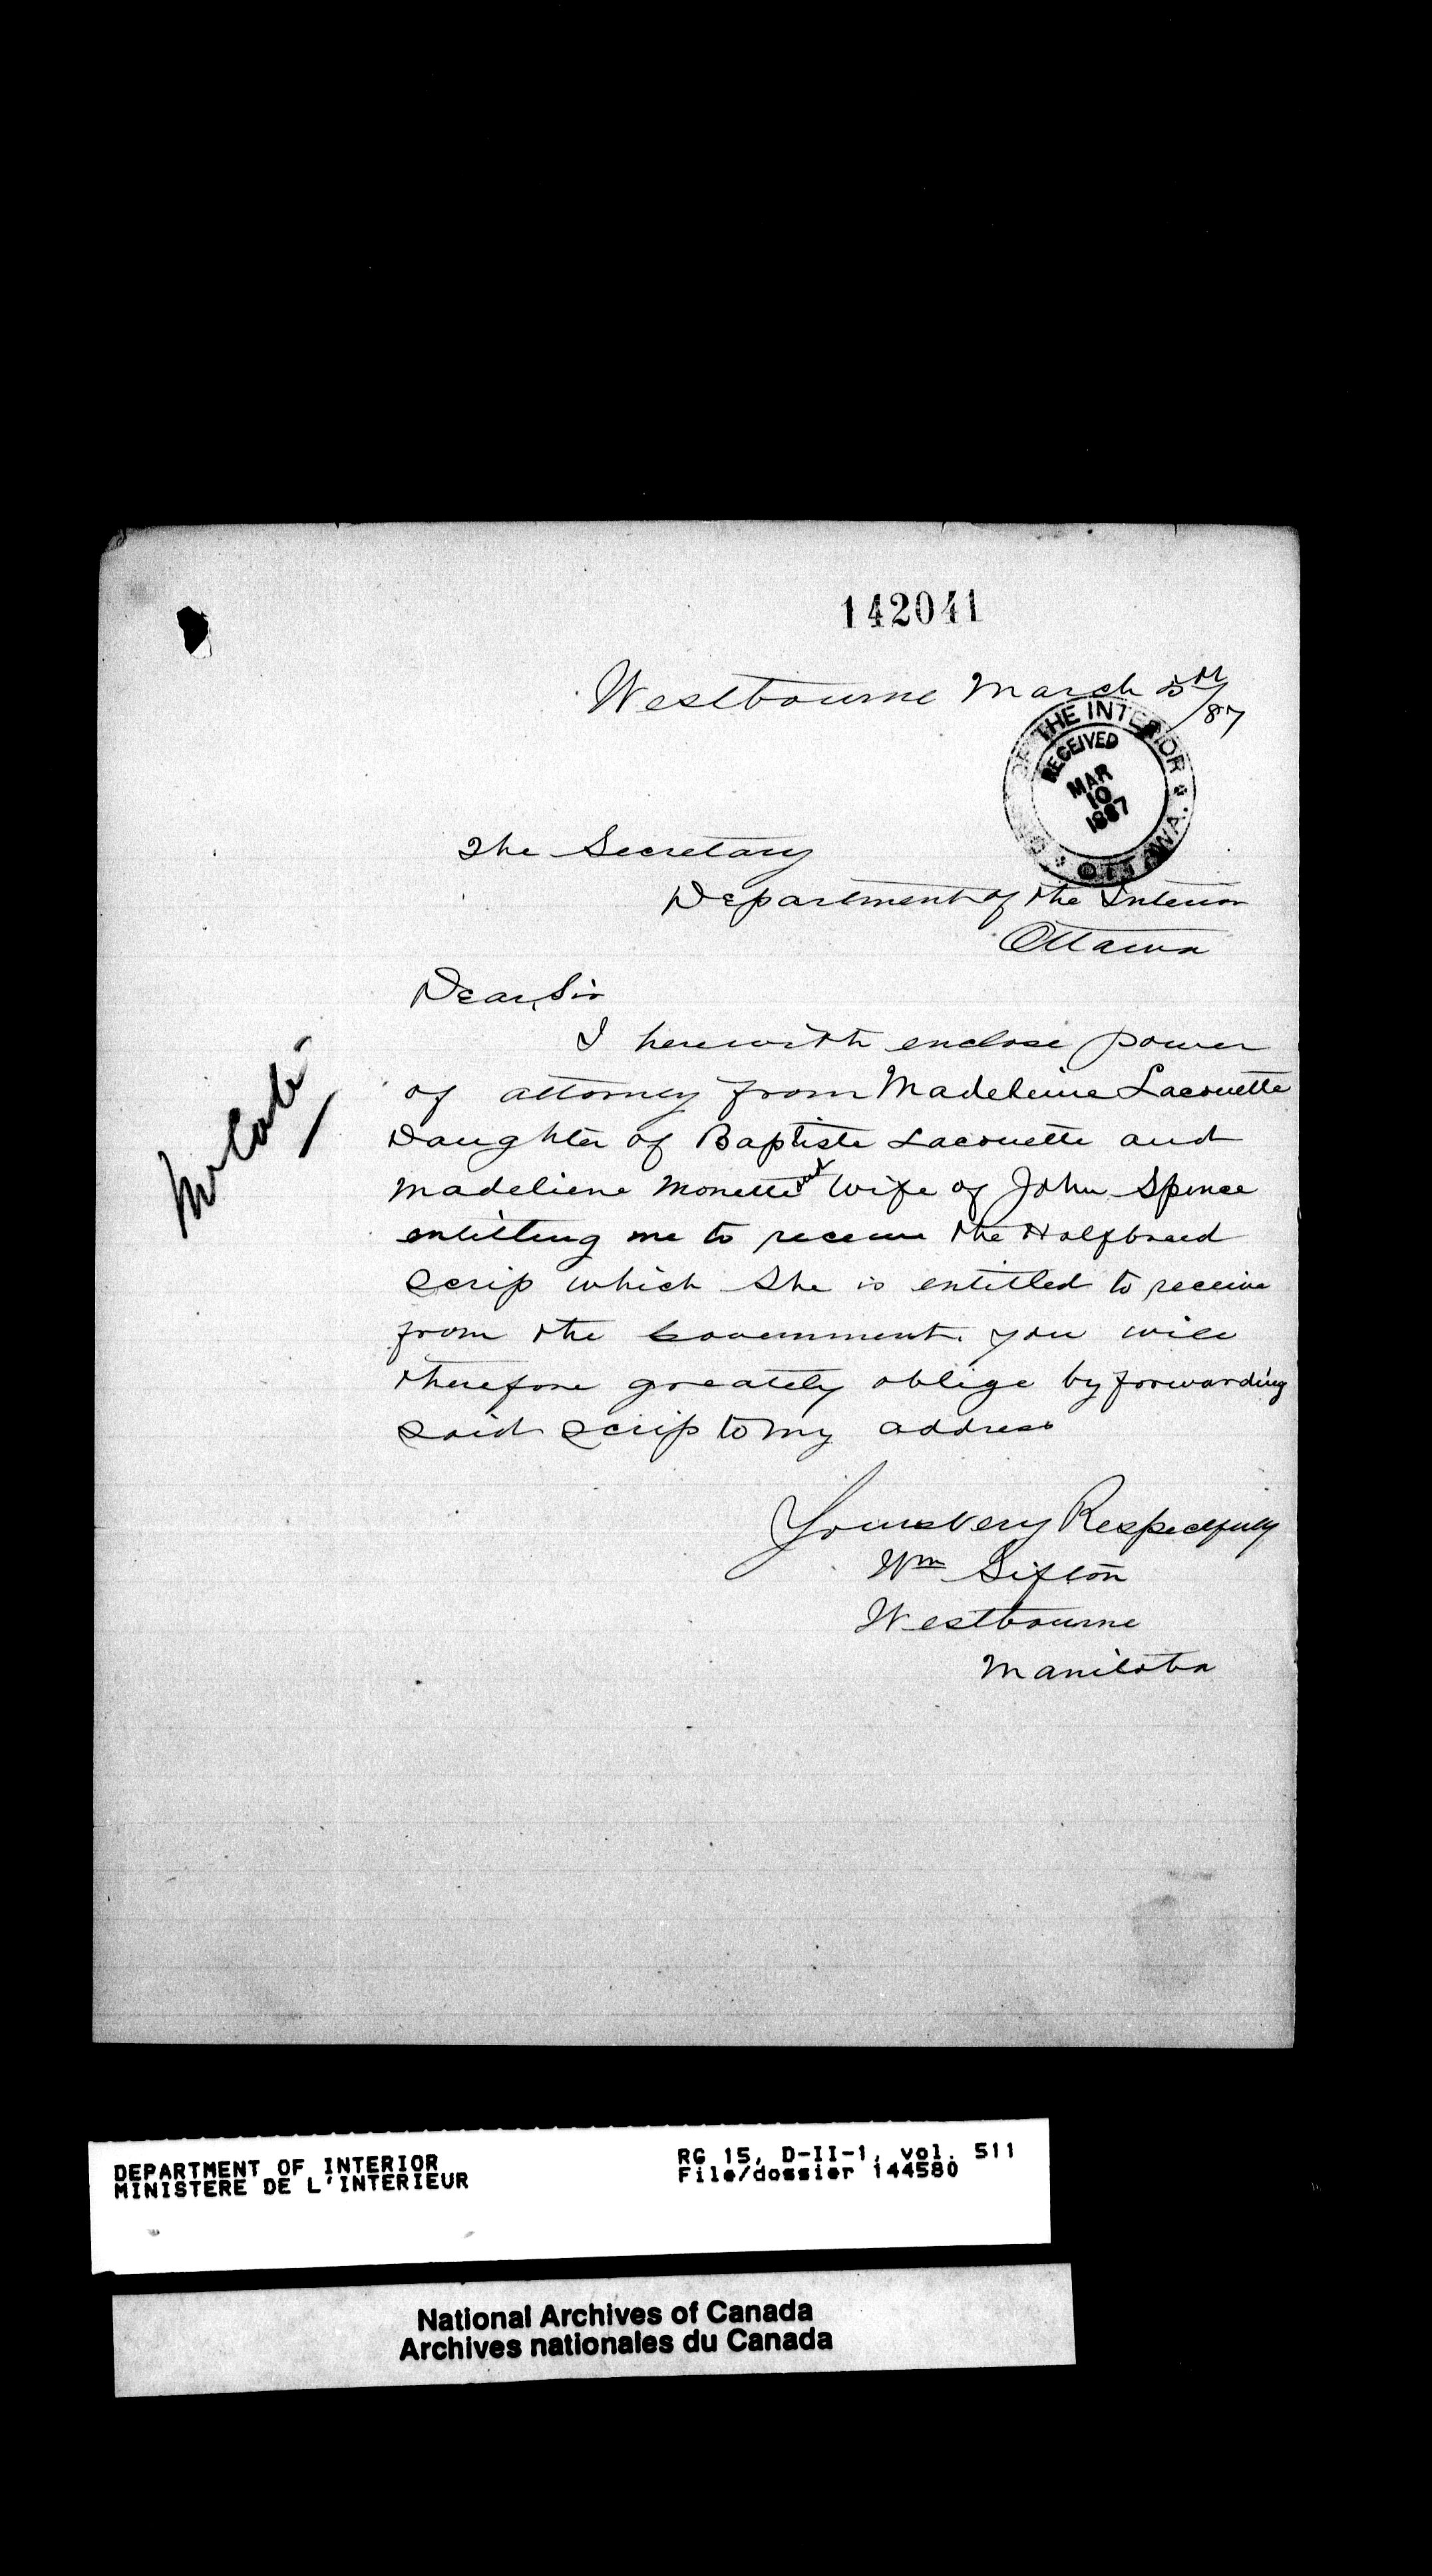 142041
Westbourne March 5th/87
DEPT. OF THE INTERIOR OTTAWA.
RECEIVED
MAR
10
1887
The Secretary
Department of the Interior
Ottawa
Dear Sir
I herewith enclose power
of attorney from Madeleine Lacouette
Daughter of Baptiste Lacouette and
Madeliene Monette and Wife of John Spence
entitling me to receive the Halfbreed
Scrip which She is entitled to receive
from the Government. you will
therefore greately oblige by forwarding
said Scrip to my address
Yours very Respectfully
Wm Sifton
Westbourne
Manitoba
DEPARTMENT OF INTERIOR
MINISTERE DE L'INTERIEUR
RG 15, D-II-1, vol. 511
File/dossier 144580
National Archives of Canada
Archives nationales du Canada